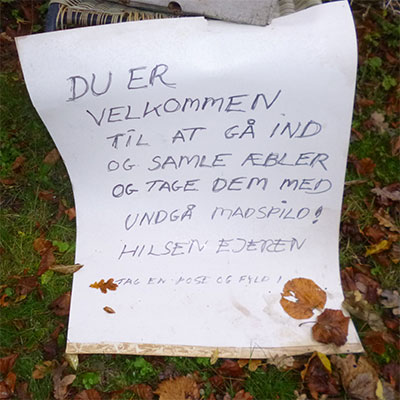 DU ER
VELKOMMEN
TIL AT GÅ IND
OG SAMLE ÆBLER
OG TAGE DEM MED
UNDGÅ MADSPILD!
HILSEN EJEREN
TAG EN POSE OG FYLD!